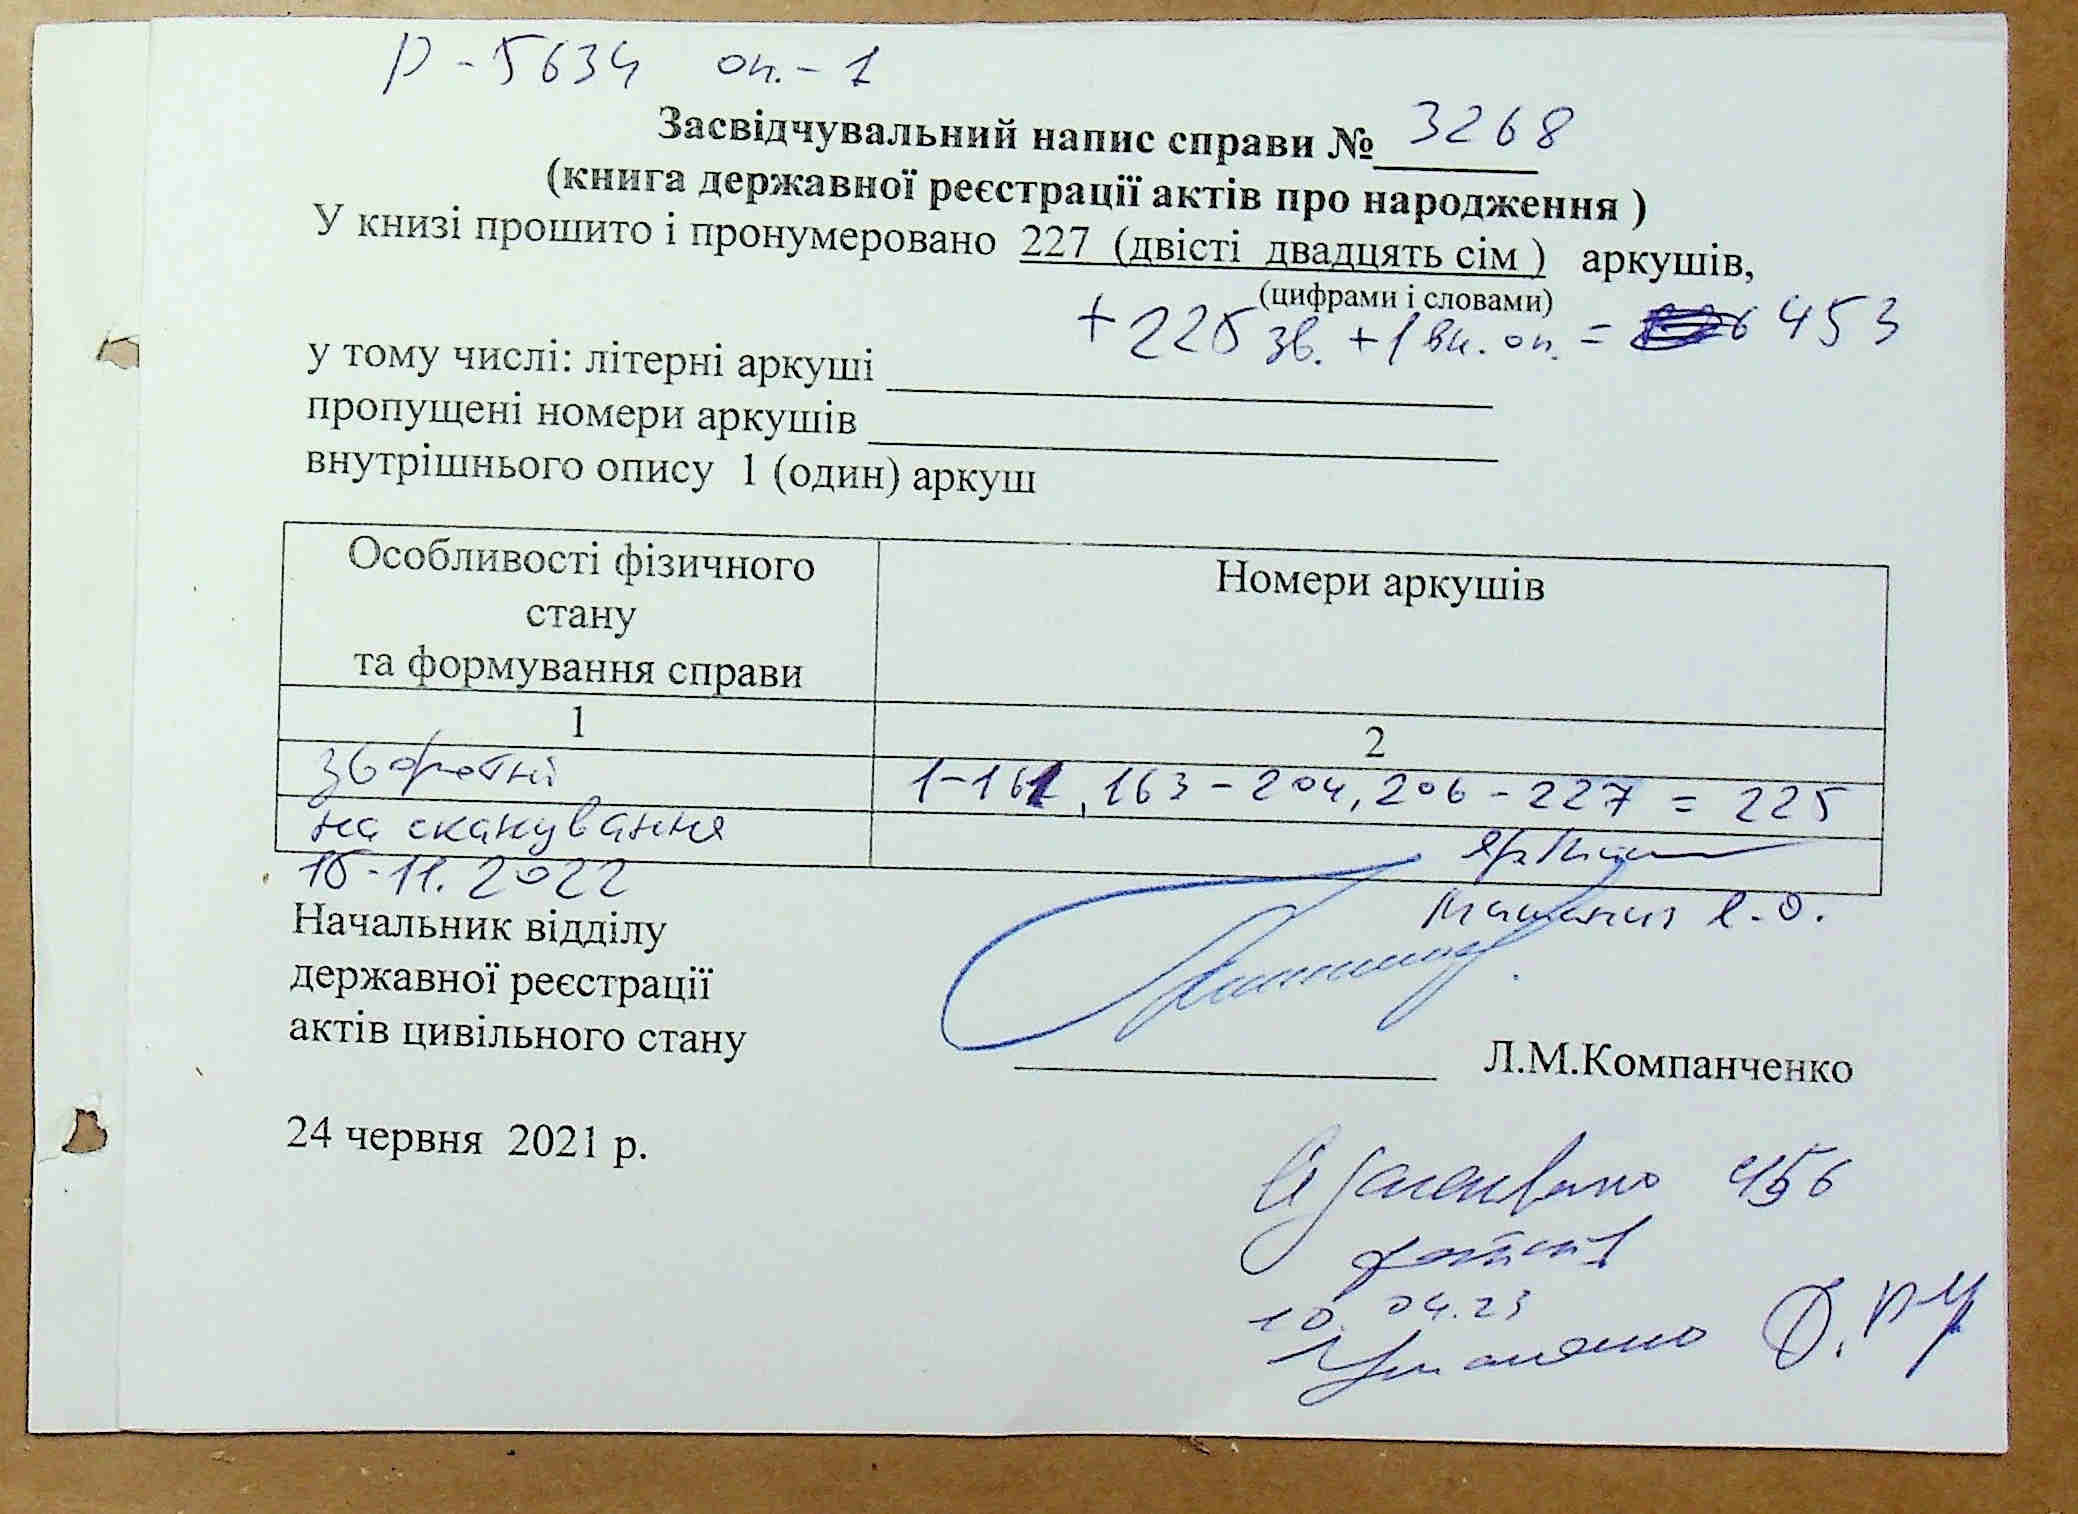 Р-5634 оп.-1
Засвідчувальний напис справи № 3268
(книга державної реєстрації актів про народження )
У книзі прошито і пронумеровано 227 (двісті двадцять сім ) аркушів,
(цифрами і словами)
+ 225 зв. + 1 вн. оп. = 453
у тому числі: літерні аркуші
пропущені номери аркушів
внутрішнього опису 1 (один) аркуш
Особливості фізичного
стану
та формування справи
Номери аркушів
1
2
зворотні
1-161, 163-204, 206-227 = 225
на сканування
15.11.2022
Начальник відділу
державної реєстрації
актів цивільного стану
Л.М.Компанченко
24 червня 2021 р.
456
10.04.23